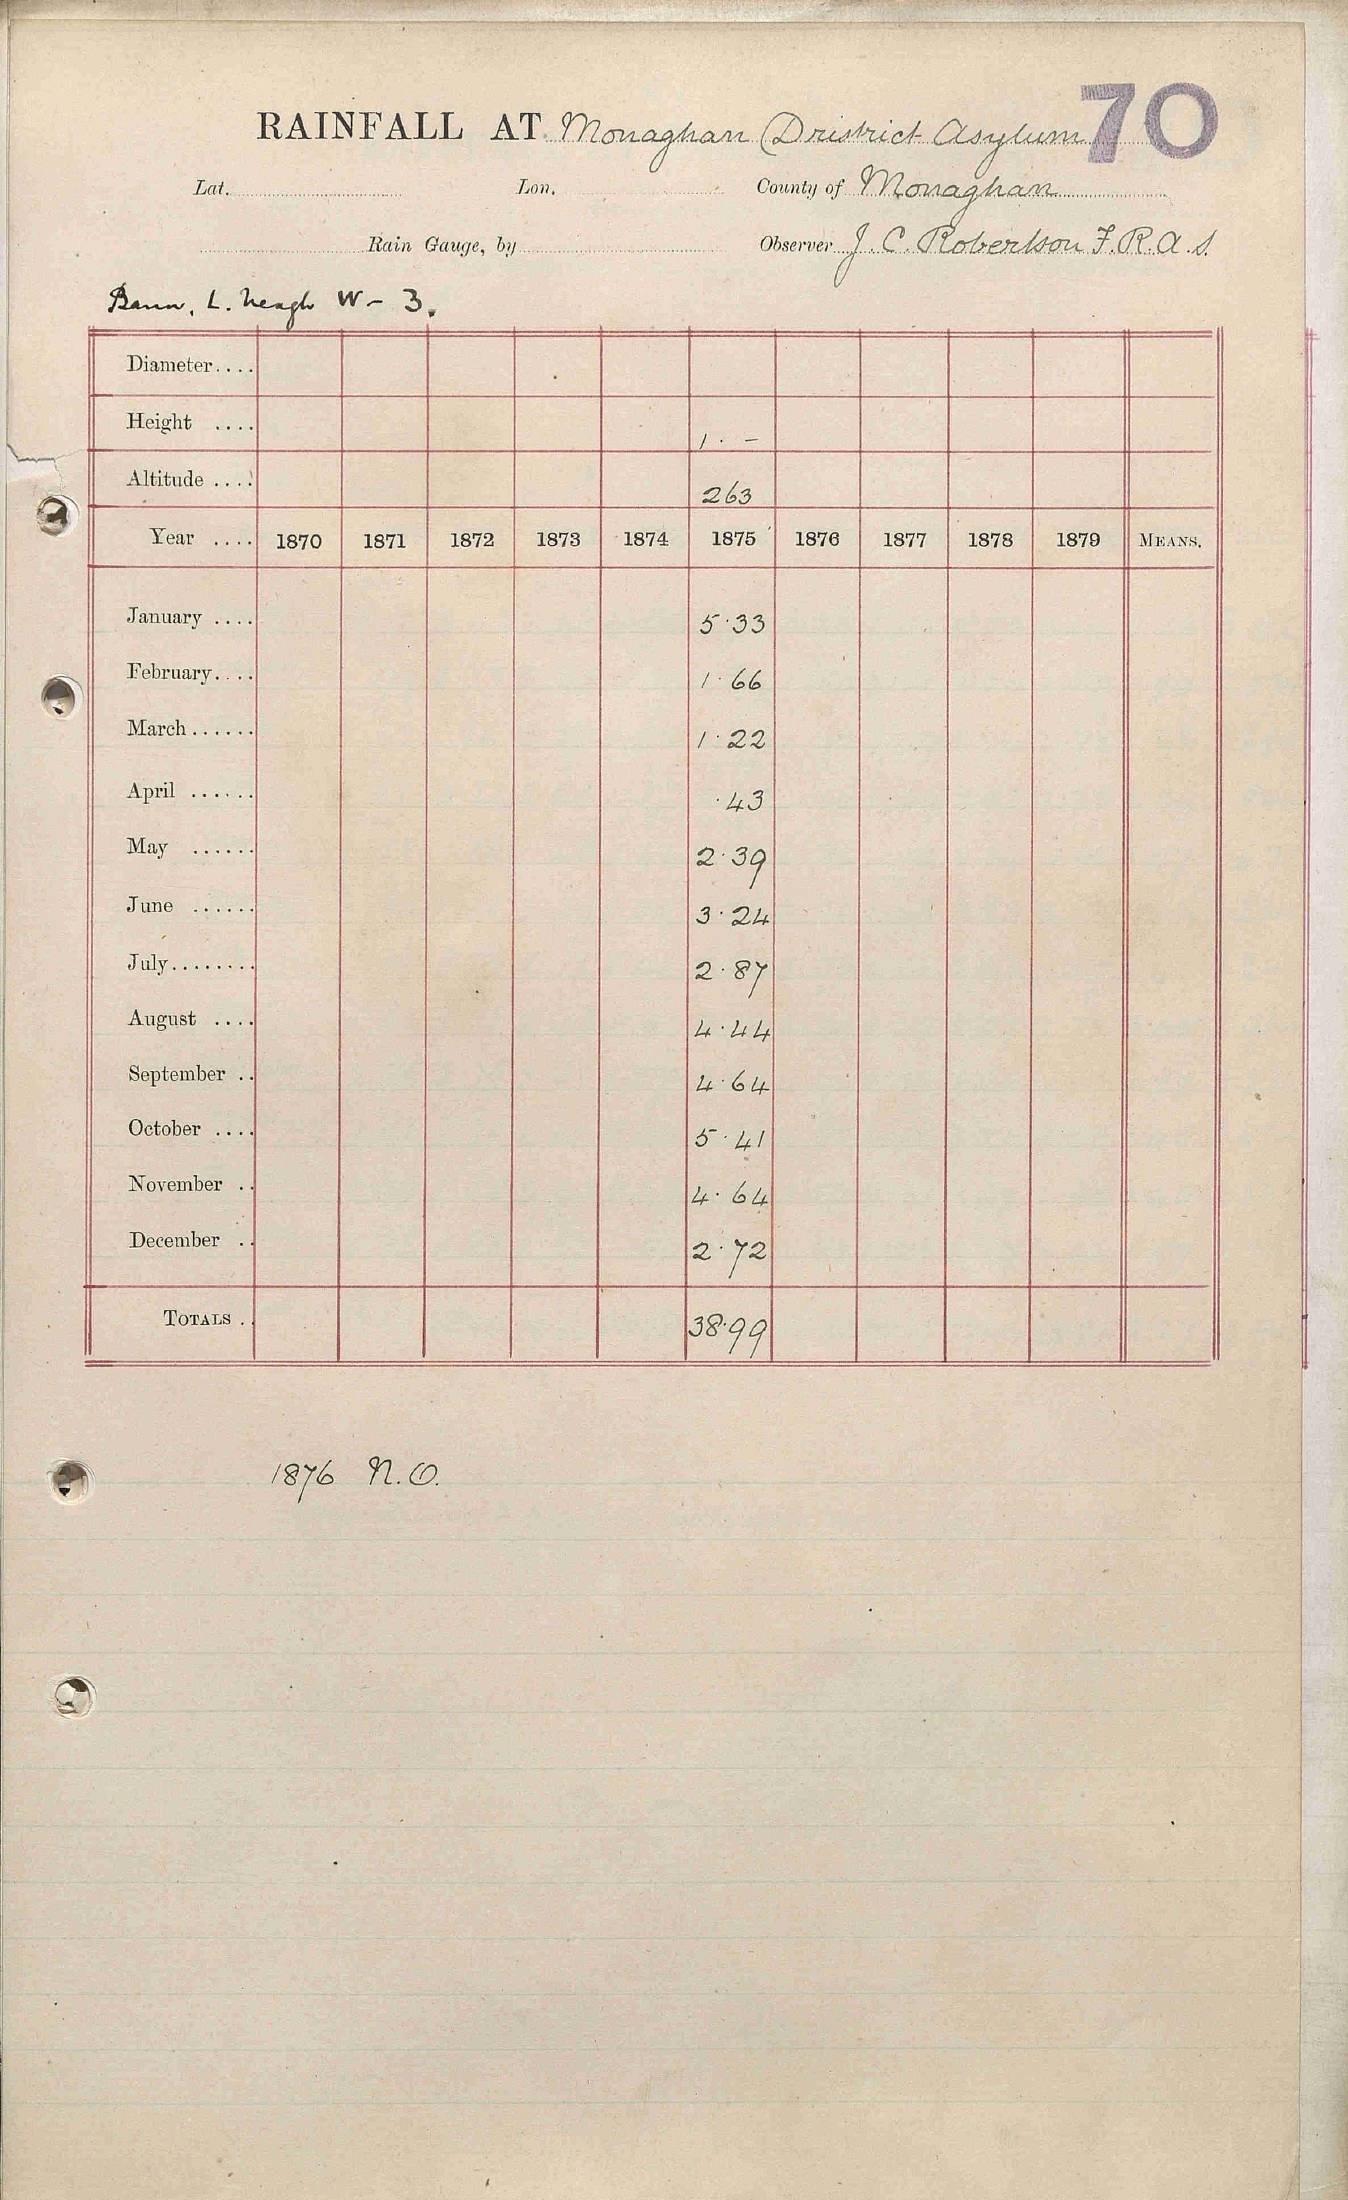 RAINFALL AT Monaghan (District Asylum 70
Lat. Lon. County of Monaghan
Rain Gauge, by Observer J. C. Robertson F.R.A.S.
Bann, L. Neagh W - 3.
Diameter....
Height .... 1 · -
Altitude .... 263
Year .... 1870 1871 1872 1873 1874 1875 1876 1877 1878 1879 MEANS.
January .... 5·33
February.... 1·66
March...... 1·22
April ...... ·43
May ...... 2·39
June ...... 3·24
July........ 2·87
August .... 4·44
September .. 4·64
October .... 5·41
November .. 4·64
December .. 2·72
TOTALS .. 38·99
1876 N.O.